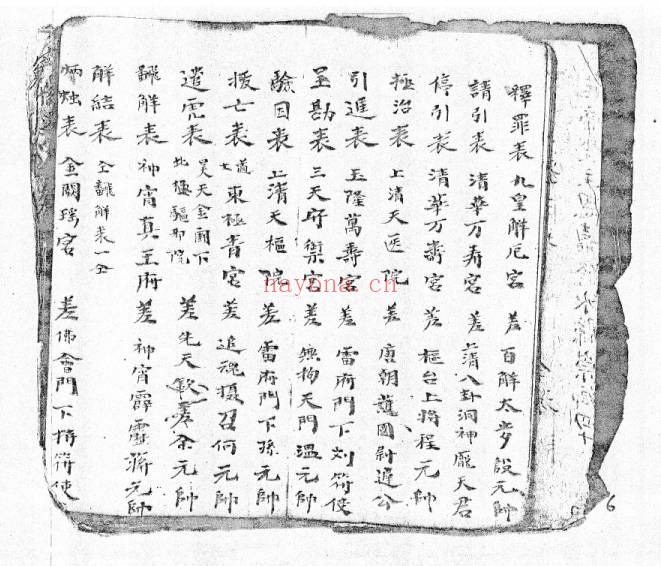 釋罪表 九皇解厄宮 差 百解太歩殷元帥
請引表 清華万寿宮 差 上清八卦洞神龐天君
停引表 清華万壽宮 差 樞台上将程元帥
極治表 上清天医院 差 唐朝護國尉遲公
引進表 玉隆萬壽宮 差 雷府門下刘符使
呈勘表 三天府禦宮 差 無拘天門温元帥
驗目表 上清天樞院 差 雷府門下孫元帥
拔亡表 道士 東極青宮 差 追魂攝召何元帥
遣虎表 昊天金闕下 北極驅邪院 差 先天元帥
解表 神宵真王府 差 神宵霹靂蔣元帥
解結表 解表一
炳烛表 金闕瑤宮 差 佛會門下楊符使
6
nayona.cn